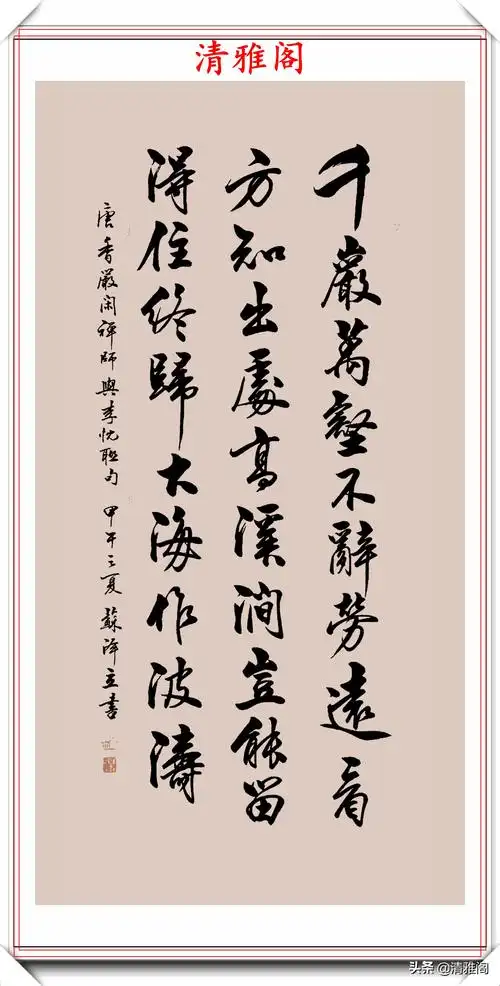 清雅阁
千巖萬壑不辭勞遠看
方知出處高溪澗豈能留
得住終歸大海作波濤
唐香嚴閑禪師與李忱聯句 甲午之夏 蘇澤立書
头条 @清雅阁